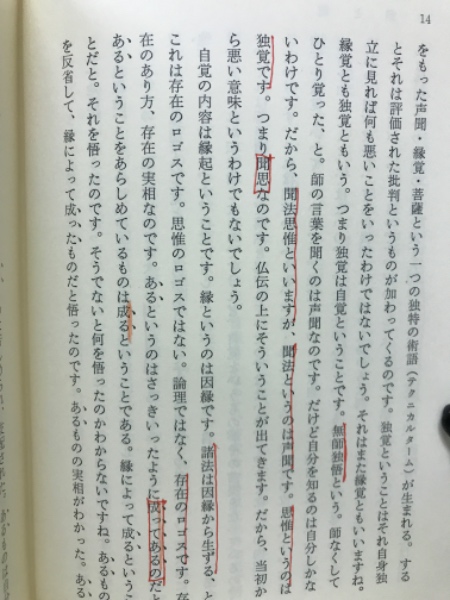 14
をもった声聞・縁覚・菩薩という一つの独特の術語（テクニカルターム）が生まれる。する
とそれは評価された批判というものが加わってくるのです。独覚ということはそれ自身独
立に見れば何も悪いことをいったわけではないでしょう。それはまた縁覚ともいいますね。
縁覚とも独覚ともいう。つまり独覚は自覚ということです。無師独悟という。師なくして
ひとり覚った、と。師の言葉を聞くのは声聞なのです。だけど自分を知るのは自分しかな
いわけです。だから、聞法思惟といいますが、聞法というのは声聞です。思惟というのは
独覚です。つまり聞思なのです。仏伝の上にそういうことが出てきます。だから、当初か
ら悪い意味というわけでもないでしょう。
自覚の内容は縁起ということです。縁というのは因縁です。諸法は因縁から生ずる、と
これは存在のロゴスです。思惟のロゴスではない。論理ではなく、存在のロゴスです。存
在のあり方、存在の実相なのです。あるというのはさっきいったように成ってあるのだと
あるということをあらしめているものは成るということである。縁によって成るというこ
とだと。それを悟ったのです。そうでないと何を悟ったのかわからないですね。あるもの
を反省して、縁によって成ったものだと悟ったのです。あるものの実相がわかった。ある